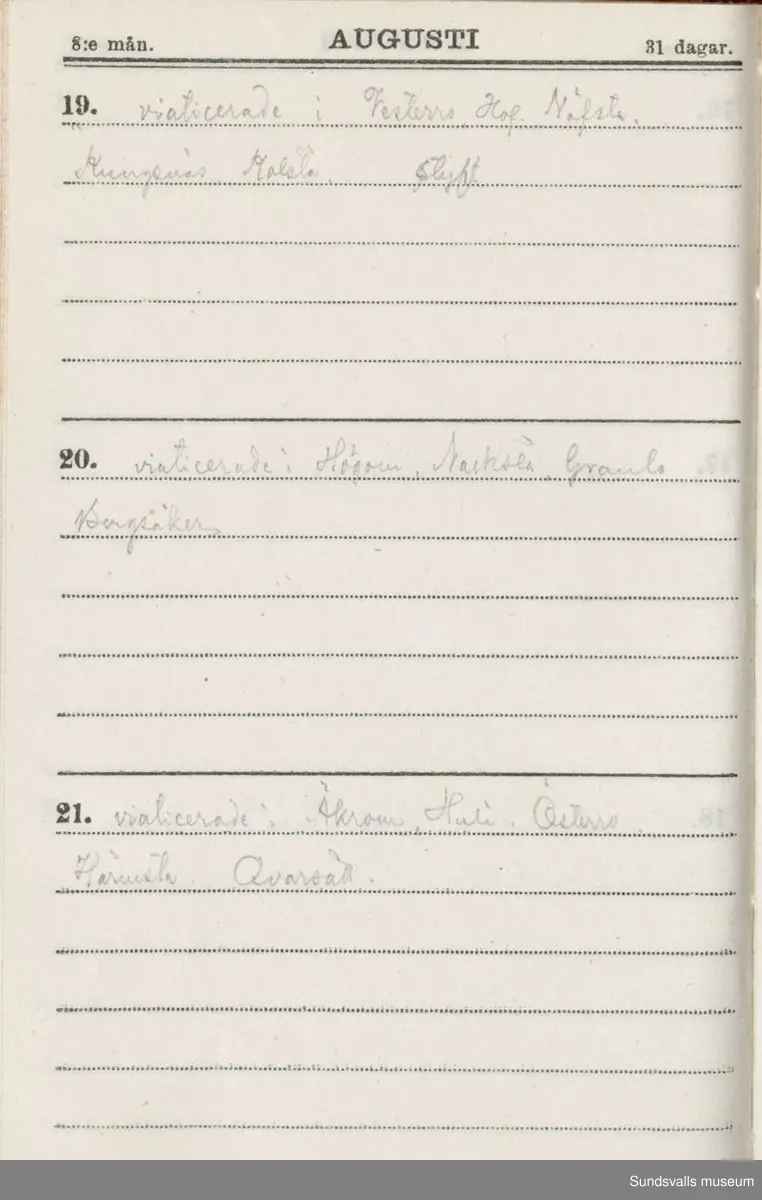 8:e mån. AUGUSTI 31 dagar.
19. viaticerade i Vesterro, Hof. Nöfsta,
Kungsnäs, Kolsta, Slyft
20. viaticerade i Högom, Nacksta, Granlo
Bergsåker
21. viaticerade i Åkrom, Huli. Österro
Härmsta. Qvarsätt.
Sundsvalls museum